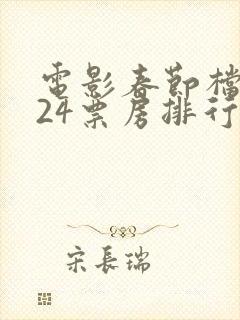 電影春節檔
24票房排行
宋長瑞